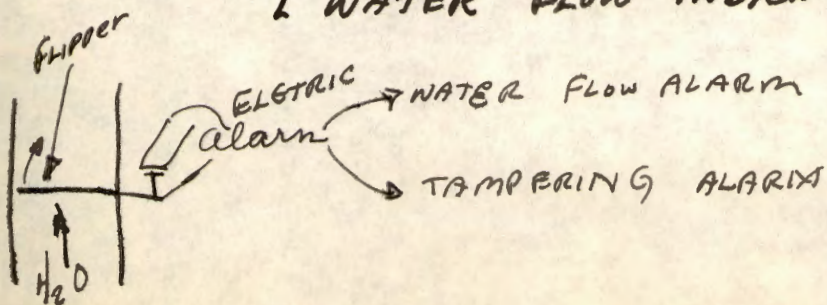 WATER FLOW
FLIPPER
ELETRIC
alarm
WATER FLOW ALARM
TAMPERING ALARM
H2O